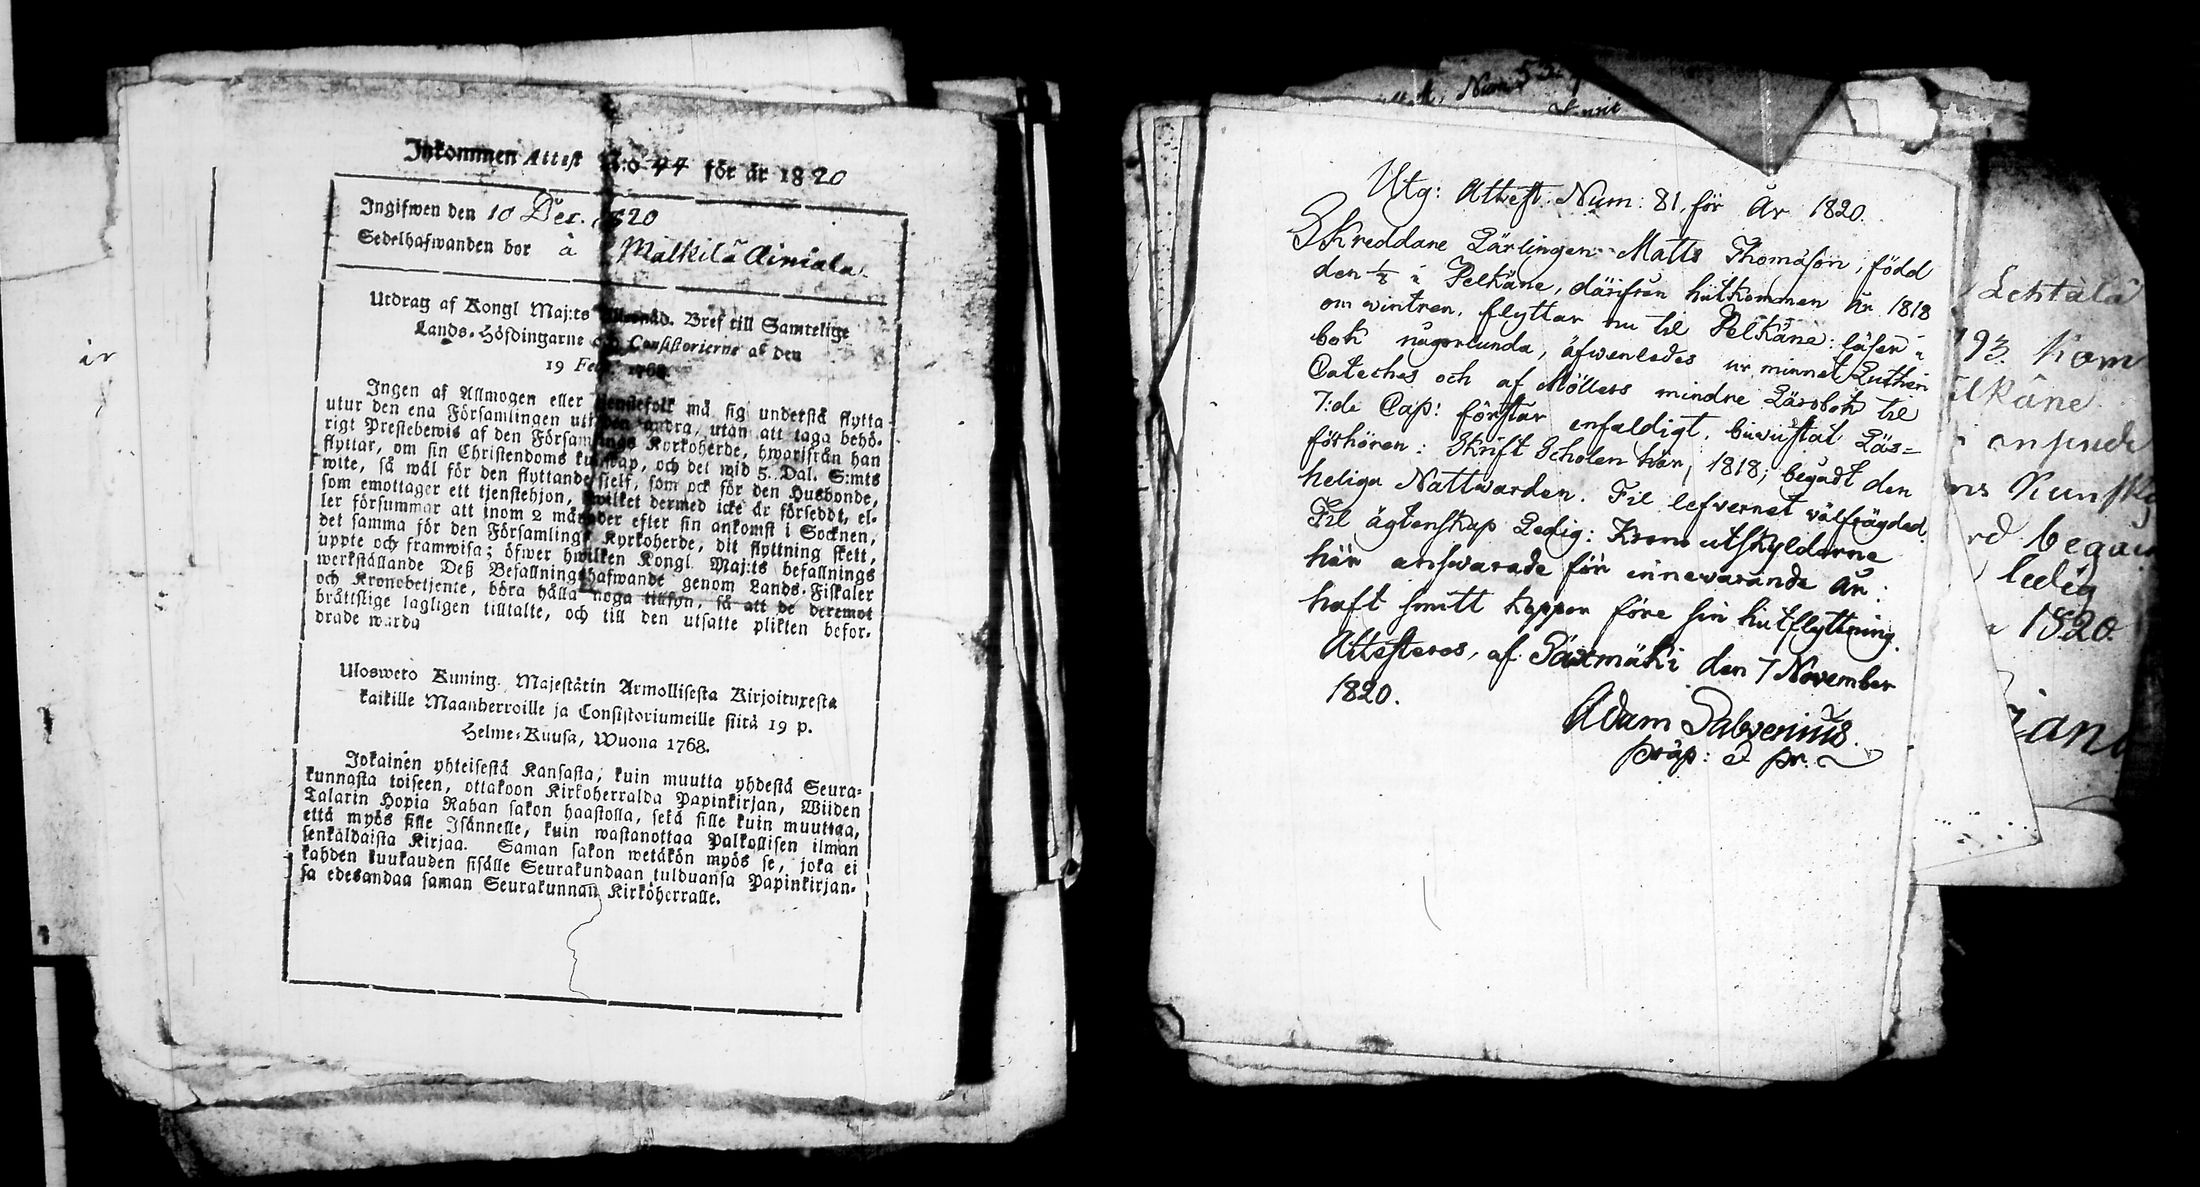 Inkommen Attest N:o 44 för år 1820
Ingifwen den 10 Dec. 1820
Sedelhafwanden bor å Mälkilä Äiniälä
Utdrag af Kongl Maj:ts Allernåd. Bref till Samtelige
Lands-Höfdingarne och Consistorierne af den
19 Febr. 1768.
Ingen af Allmogen eller tjenstefolk må sig understå flytta
utur den ena Församlingen uti den andra, utan att taga behö-
rigt Prestebewis af den Församlings Kyrkoherde, hwarifrån han
flyttar, om sin Christendoms kunskap, och det wid 5. Dal. S:mts
wite, så wäl för den flyttande sielf, som ock för den Husbonde,
som emottager ett tjenstehjon, hwilket dermed icke är försedt, el-
ler försummar att inom 2 månader efter sin ankomst i Socknen,
det samma för den Församlings Kyrkoherde, dit flyttning skett,
uppte och framwisa; öfwer hwilken Kongl. Maj:ts befallnings
werkställande Deß Befallningshafwande genom Lands-Fiskaler
och Kronobetjente, böra hålla noga tillsyn, så att de deremot
bråttslige lagligen tilltalte, och till den utsatte plikten befor-
drade warda
Uloswetö Kuning. Majestätin Armollisesta Kirjoituxesta
kaikille Maanherroille ja Consistoriumeille siitä 19 p.
Helme-Kuusa, Wuona 1768.
Jokainen yhteisestä Kansasta, kuin muutta yhdestä Seura-
kunnasta toiseen, ottakoon Kirkoherralda Papinkirjan, Wiiden
Talarin Hopia Rahan sakon haastolla, sekä sille kuin muuttaa,
että myös sille Isännelle, kuin wastanottaa Palkollisen ilman
senkaldaista Kirjaa. Saman sakon wetäkön myös se, joka ei
kahden kuukauden sisälle Seurakundaan tulduansa Papinkirjan-
sa edesandaa saman Seurakunnan Kirköherralle.
Utg: Attest: Num: 81. för År 1820.
Skreddare Lärlingen Matts Thomasson, född
den i Pelkäne, därifrån hitkommen år 1818
om wintren, flyttar nu til Pelkäne: läser i
bok någorlunda, äfwenledes ur minnet Lutheri
Cateches och af Möllers mindre Lärobok til
7:de Cap: förstår enfaldigt, biwistat Läs=
förhören: Skrift Scholen här, 1818; begådt den
heliga Nattwarden. Til lefvernet välfrägdad.
Til ägtenskap Ledig: Krono utskylderne
här answarade för innewarande år:
haft smitt koppor före sin hitflyttning.
Attesteras, af Säxmäki den 7 November
1820.
Adam Salvenius.
präp: & pr:
Lehtala
93. Kom
elkäne
ansende
ns Kunska
rd begått
ledig
1820.